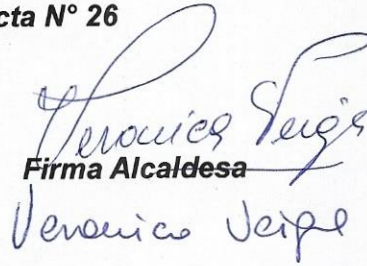 cta N° 26
Veronica Veiga
Firma Alcaldesa
Veronica Veiga